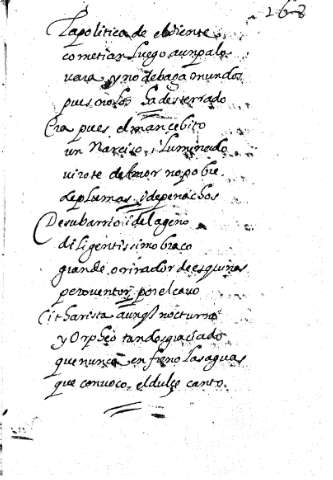 268
La politica de el diente
cometian luego a un palo
vara y no de bagamundos
pues no los ha desterrado
Era pues el mancebito
un Narciso iluminado
virote de Amor no pobre
de plumas i de penachos
De su barrio i del ageno
diligentissimo braco
grande orinador de esquinas
pero ventor por el cavo
Citharista aunq̃ nocturno
y Orpheo tan desgraciado
que nunca enfreno las aguas
que convoco el dulçe canto.